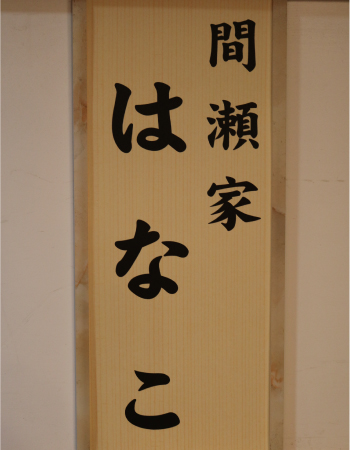 間瀬家
はなこ